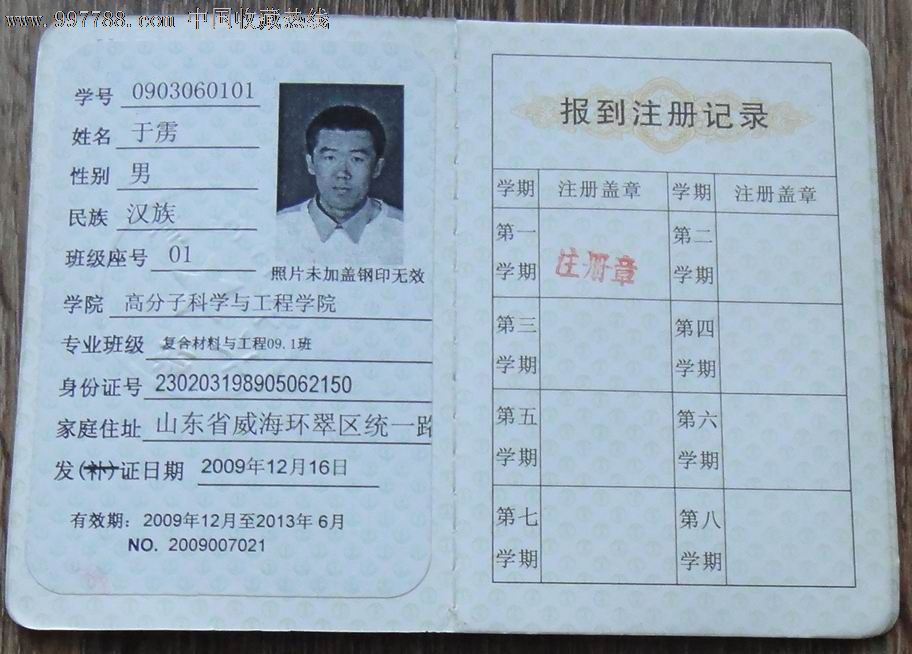 www.997788.com 中国收藏热线
学号 0903060101
姓名 于雳
性别 男
民族 汉族
班级座号 01
照片未加盖钢印无效
学院 高分子科学与工程学院
专业班级 复合材料与工程09.1班
身份证号 230203198905062150
家庭住址 山东省威海环翠区统一路
发(补)证日期 2009年12月16日
有效期：2009年12月至2013年6月
NO. 2009007021
报到注册记录
学期 注册盖章 学期 注册盖章
第一学期 注册章 第二学期
第三学期 第四学期
第五学期 第六学期
第七学期 第八学期